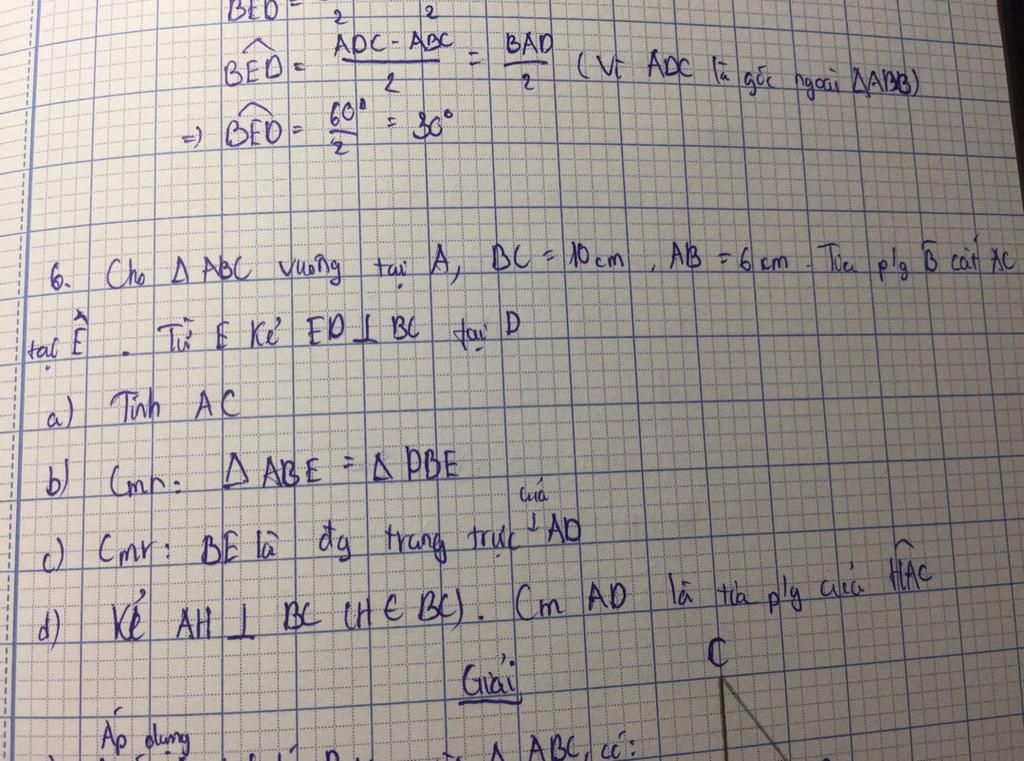 BED =
2 2
BED = ADC - ABC / 2 = BAD / 2 (Vì ADC là góc ngoài ΔABB)
=> BED = 60° / 2 = 30°
6. Cho Δ ABC vuông tại A, BC = 10 cm, AB = 6 cm. Tia p/g B cắt AC
tại E. Từ E kẻ ED ⊥ BC tại D
a) Tính AC
b) Cmr: Δ ABE = Δ DBE
c) Cmr: BE là đg trung trực của AD
d) Kẻ AH ⊥ BC (H ∈ BC). Cm AD là tia p/g của HAC
Giải
C
Áp dụng
Δ ABC, có: